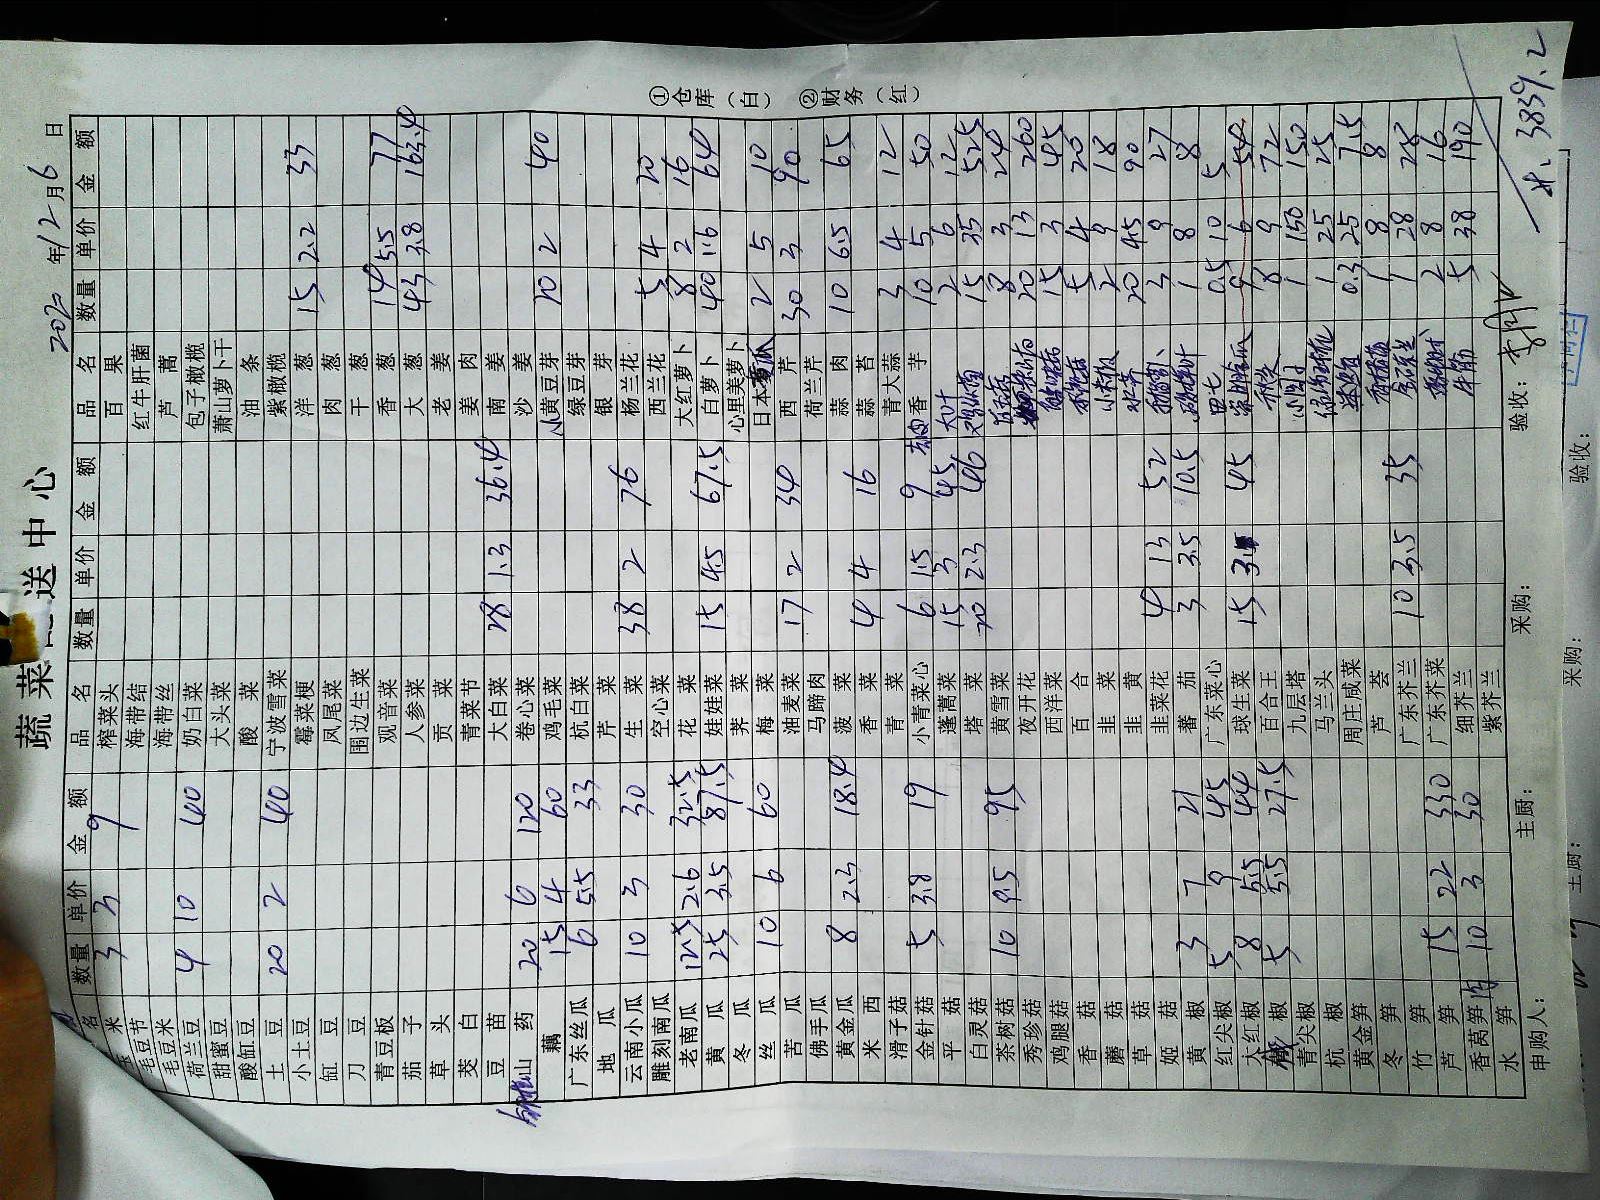 蔬菜配送中心
2020年12月6日
品名 数量 单价 金额 品名 数量 单价 金额 品名 数量 单价 金额
玉米 3 3 9 榨菜头 百果
毛豆节 海带结 红牛肝菌
毛豆米 海带丝 芦蒿
荷兰豆 4 10 40 奶白菜 包子橄榄
甜蜜豆 大头菜 萧山萝卜干
酸缸豆 酸菜 油条
土豆 20 2 40 宁波雪菜 紫橄榄
小土豆 霉菜梗 洋葱 15 2.2 33
缸豆 凤尾菜 肉葱
刀豆 围边生菜 干葱
青豆板 观音菜 香葱 14 5.5 77
茄子 人参菜 大葱 43 3.8 163.4
草头 贡菜 老姜
茭白 青菜节 姜肉
豆苗 大白菜 28 1.3 36.4 南姜
山药 20 6 120 卷心菜 沙姜
藕 15 4 60 鸡毛菜 小黄豆芽 20 2 40
广东丝瓜 6 5.5 33 杭白菜 绿豆芽
地瓜 芹菜 银芽
云南小瓜 10 3 30 生菜 38 2 76 杨兰花
雕刻南瓜 空心菜 西兰花 5 4 20
老南瓜 12.5 2.6 32.5 花菜 大红萝卜 8 2 16
黄瓜 25 3.5 87.5 娃娃菜 15 4.5 67.5 白萝卜 40 1.6 64
冬瓜 荠菜 心里美萝卜
丝瓜 10 6 60 梅菜 日本 2 5 10
苦瓜 油麦菜 17 2 34 西芹 30 3 90
佛手瓜 马蹄肉 荷兰芹
黄金瓜 8 2.3 18.4 菠菜 蒜肉 10 6.5 65
米西 香菜 4 4 16 蒜苔
滑子菇 青菜 青大蒜 3 4 12
金针菇 5 3.8 19 小青菜心 6 1.5 9 香芋 10 5 50
平菇 蓬蒿菜 15 3 45 大叶 2 6 12
白灵菇 塔菜 20 2.3 46 15 35 525
茶树菇 10 9.5 95 黄雪菜 8 3 24
秀珍菇 夜开花 20 13 260
鸡腿菇 西洋菜 15 3 45
香菇 百合 5 4 20
蘑菇 韭菜 小米椒 2 9 18
草菇 韭黄 20 4.5 90
姬菇 韭菜花 4 13 52 3 9 27
黄椒 3 7 21 蕃茄 3 3.5 10.5 1 8 8
红尖椒 5 9 45 广东菜心 田七 0.5 10 5
大红椒 8 5.5 44 球生菜 15 3 45 9 6 54
椒 5 5.5 27.5 百合王 秋葵 8 9 72
青尖椒 九层塔 1 150 150
杭椒 马兰头 1 25 25
黄金笋 周庄咸菜 0.3 25 7.5
冬笋 芦荟 1 8 8
竹笋 广东芥兰 10 3.5 35 1 28 28
芦笋 15 22 330 广东芥菜 2 8 16
香莴笋 10 3 30 细芥兰 牛筋 5 38 190
水笋 紫芥兰
申购人： 主厨： 采购： 验收：
3839.2
①仓库（白） ②财务（红）
主厨： 采购： 验收：